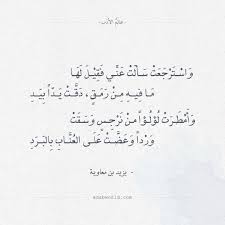 عالم الأدب
وَاسْتَرْجَعَتْ سَأَلَتْ عَنِّي فَقِيْلَ لَهَا
مَا فِيهِ مِنْ رَمَقٍ، دَقَّتْ يَدًا بِيَدِ
وَأَمْطَرَتْ لُؤْلُؤًا مِنْ نَرْجِسٍ وَسَقَتْ
وَرْدًا وَعَضَّتْ عَلَى العُنَّابِ بِالبَرَدِ
- يزيد بن معاوية -